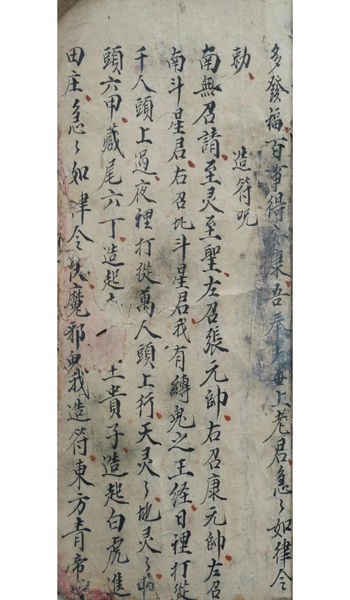 多發福百事得安康吾奉上老君急〻如律令
勅
造符呪
南無召請至灵至聖左召張元帥右召康元帥左召
南斗星君右召北斗星君我有縛鬼之王経日裡打從
千人頭上過夜裡打從萬人頭上行天灵〻地灵〻
頭六甲藏尾六丁造起土貴子造起白虎進
田庄急〻如律令魔邪我造符東方青帝